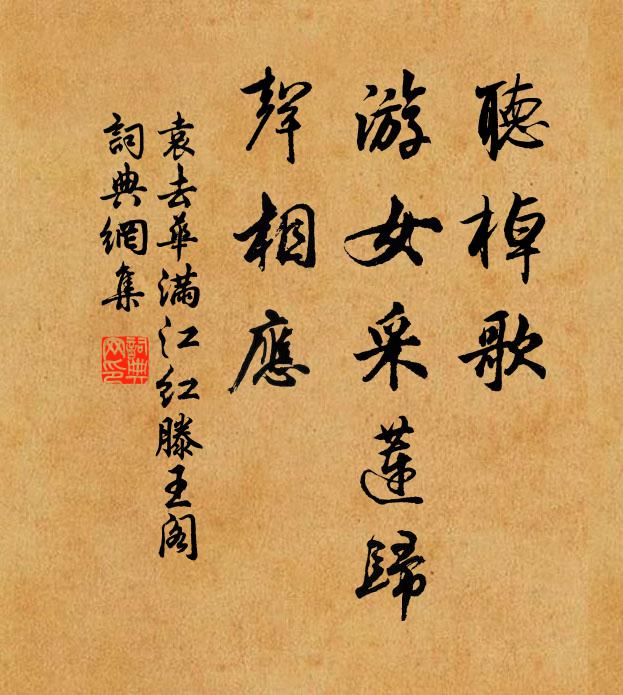 聽棹歌
游女采蓮歸
聲相應
袁去華滿江红滕王阁
詞典網集
詞典
网印